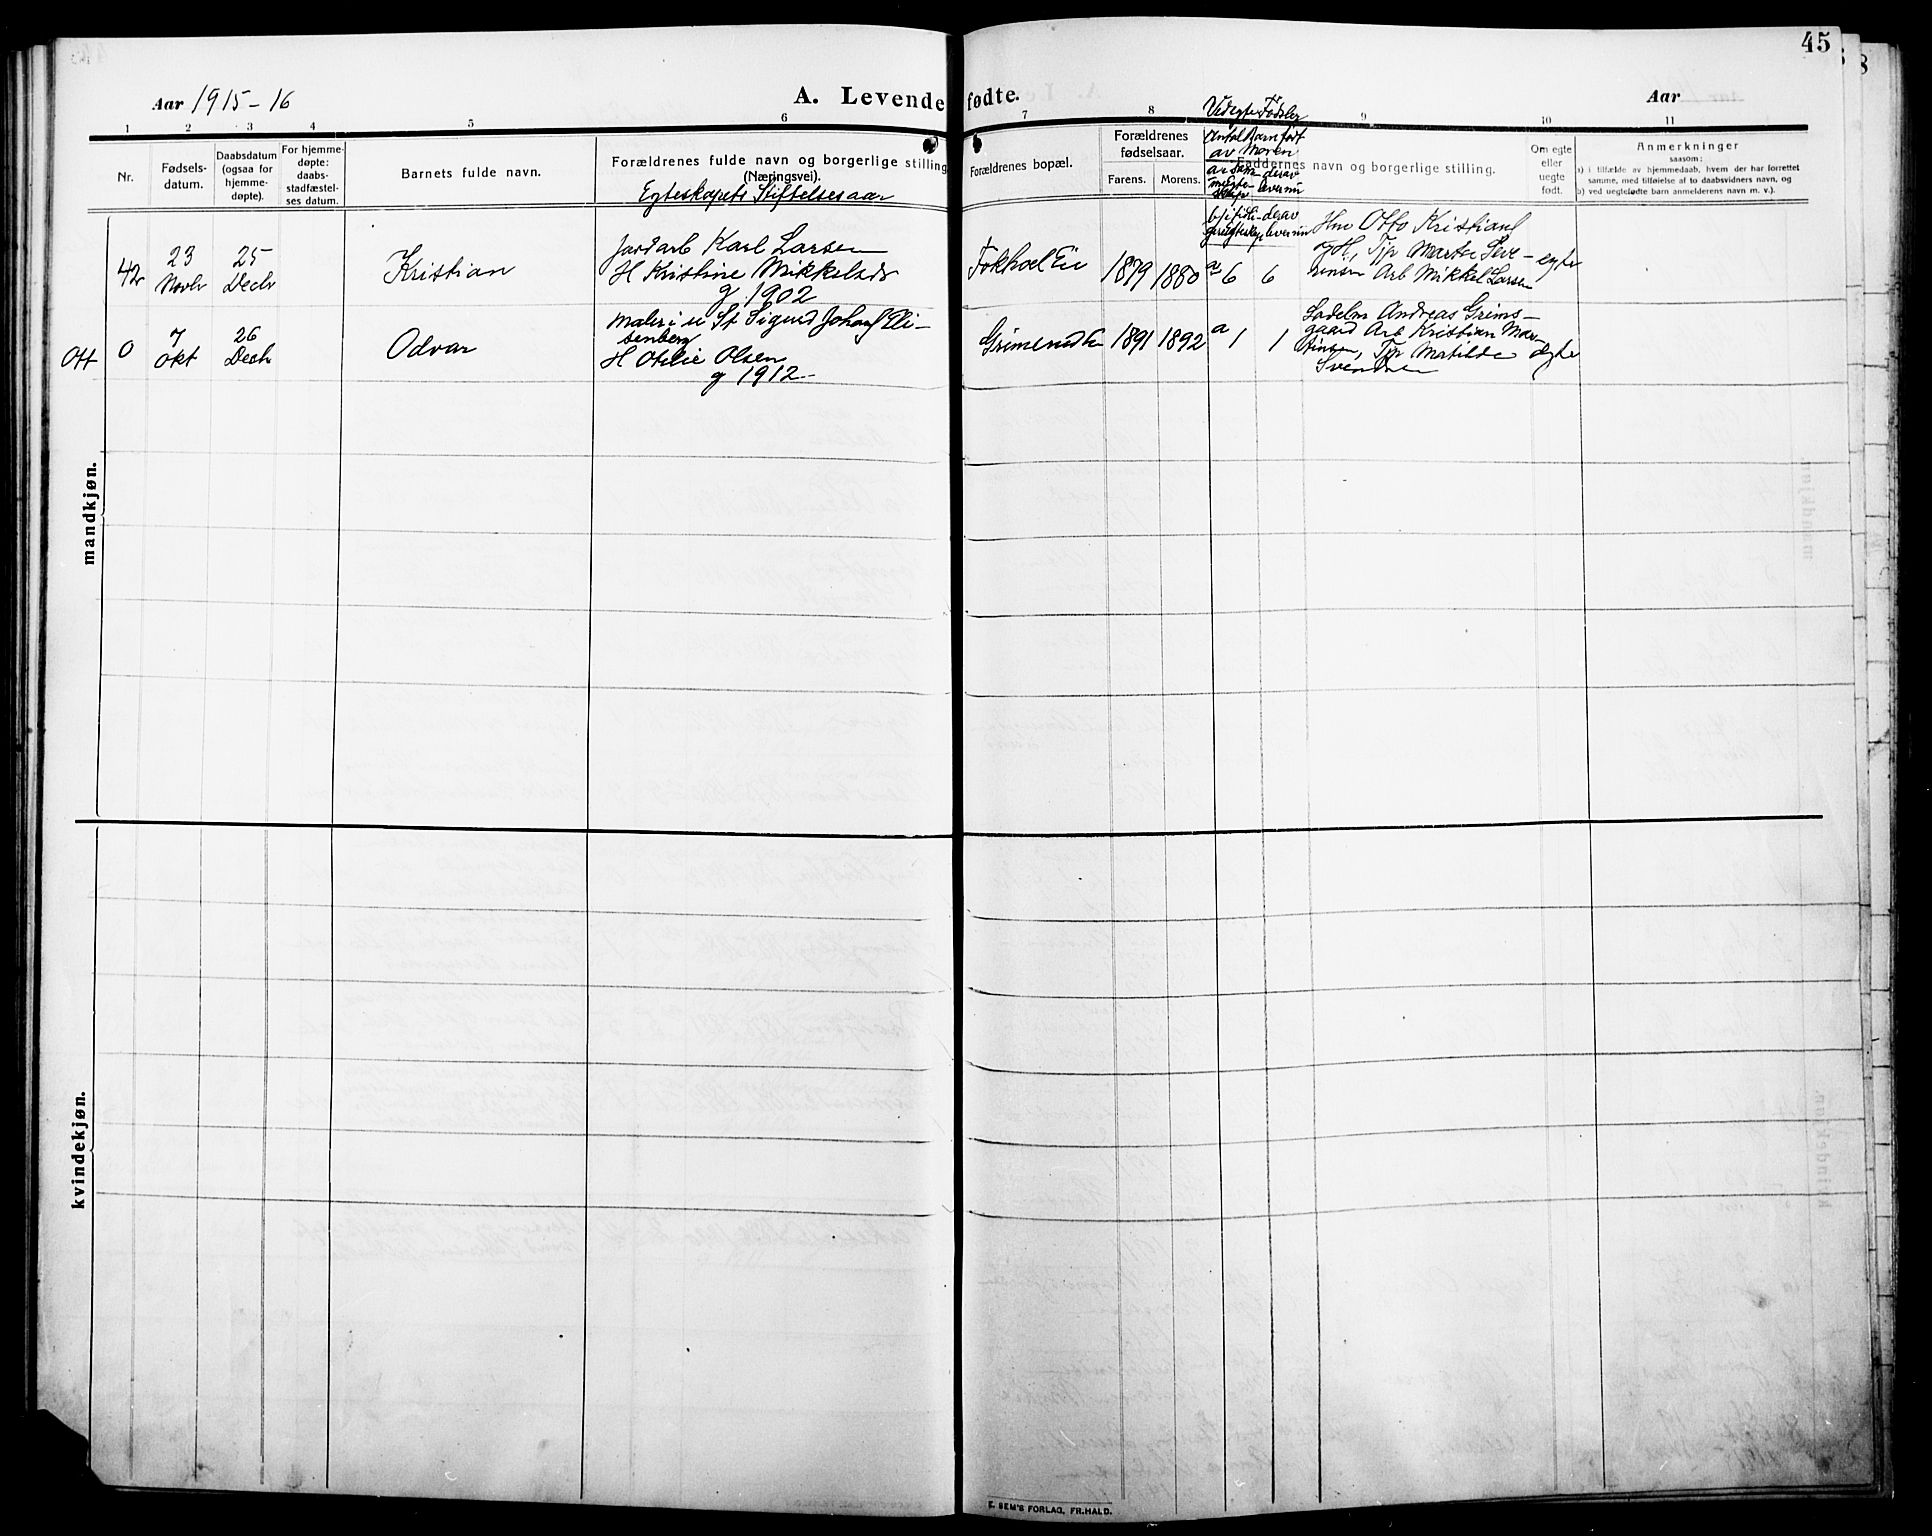 45
8
Aar 1915-16
A. Levende fødte.
Aar
1 2 3 4 5 6 7 8 9 10 11
Nr.
Fødsels-
datum.
Daabsdatum
(ogsaa for
hjemme-
døpte).
For hjemme-
døpte:
daabs-
stadfæstel-
ses datum.
Barnets fulde navn.
Forældrenes fulde navn og borgerlige stilling
(Næringsvei).
Egteskapets Stiftelsesaar
Forældrenes bopæl.
Forældrenes
fødselsaar.
Farens.
Morens.
Ved egte Fødsler
Antal Barn født
av Moren
Faddernes navn og borgerlige stilling.
Om egte
eller
uegte
født.
Anmerkninger
saasom:
a) i tilfælde av hjemmedaab, hvem der har forrettet
samme, med tilføielse af to daabsvidners navn, og
b) ved uegtefødte barn anmelderens navn m. v.).
mandkjøn.
42
23
Novbr
25
Decbr
Kristian
Jordarb Karl Larsen
H Kristine Mikkelsdr
g 1902
Fokhol Eie
1879
1880
a 6
6
Hm Otto Kristians
gH, Tjp Marte Seve-
rinsen Arb Mikkel Larsen
egte
Ott
0
7
Okt
26
Decb
Odvar
Maler i u St Sigurd Johans Eli-
senberg
H Otilie Olsen
g 1912
1891
1892
a 1
1
Sadelm Andreas Grims-
gaard Arb Kristian Mar-
tinsen, Tjp Matilde
Svendsen
egte
kvindekjøn.
E. SEM'S FORLAG, FR.HALD.